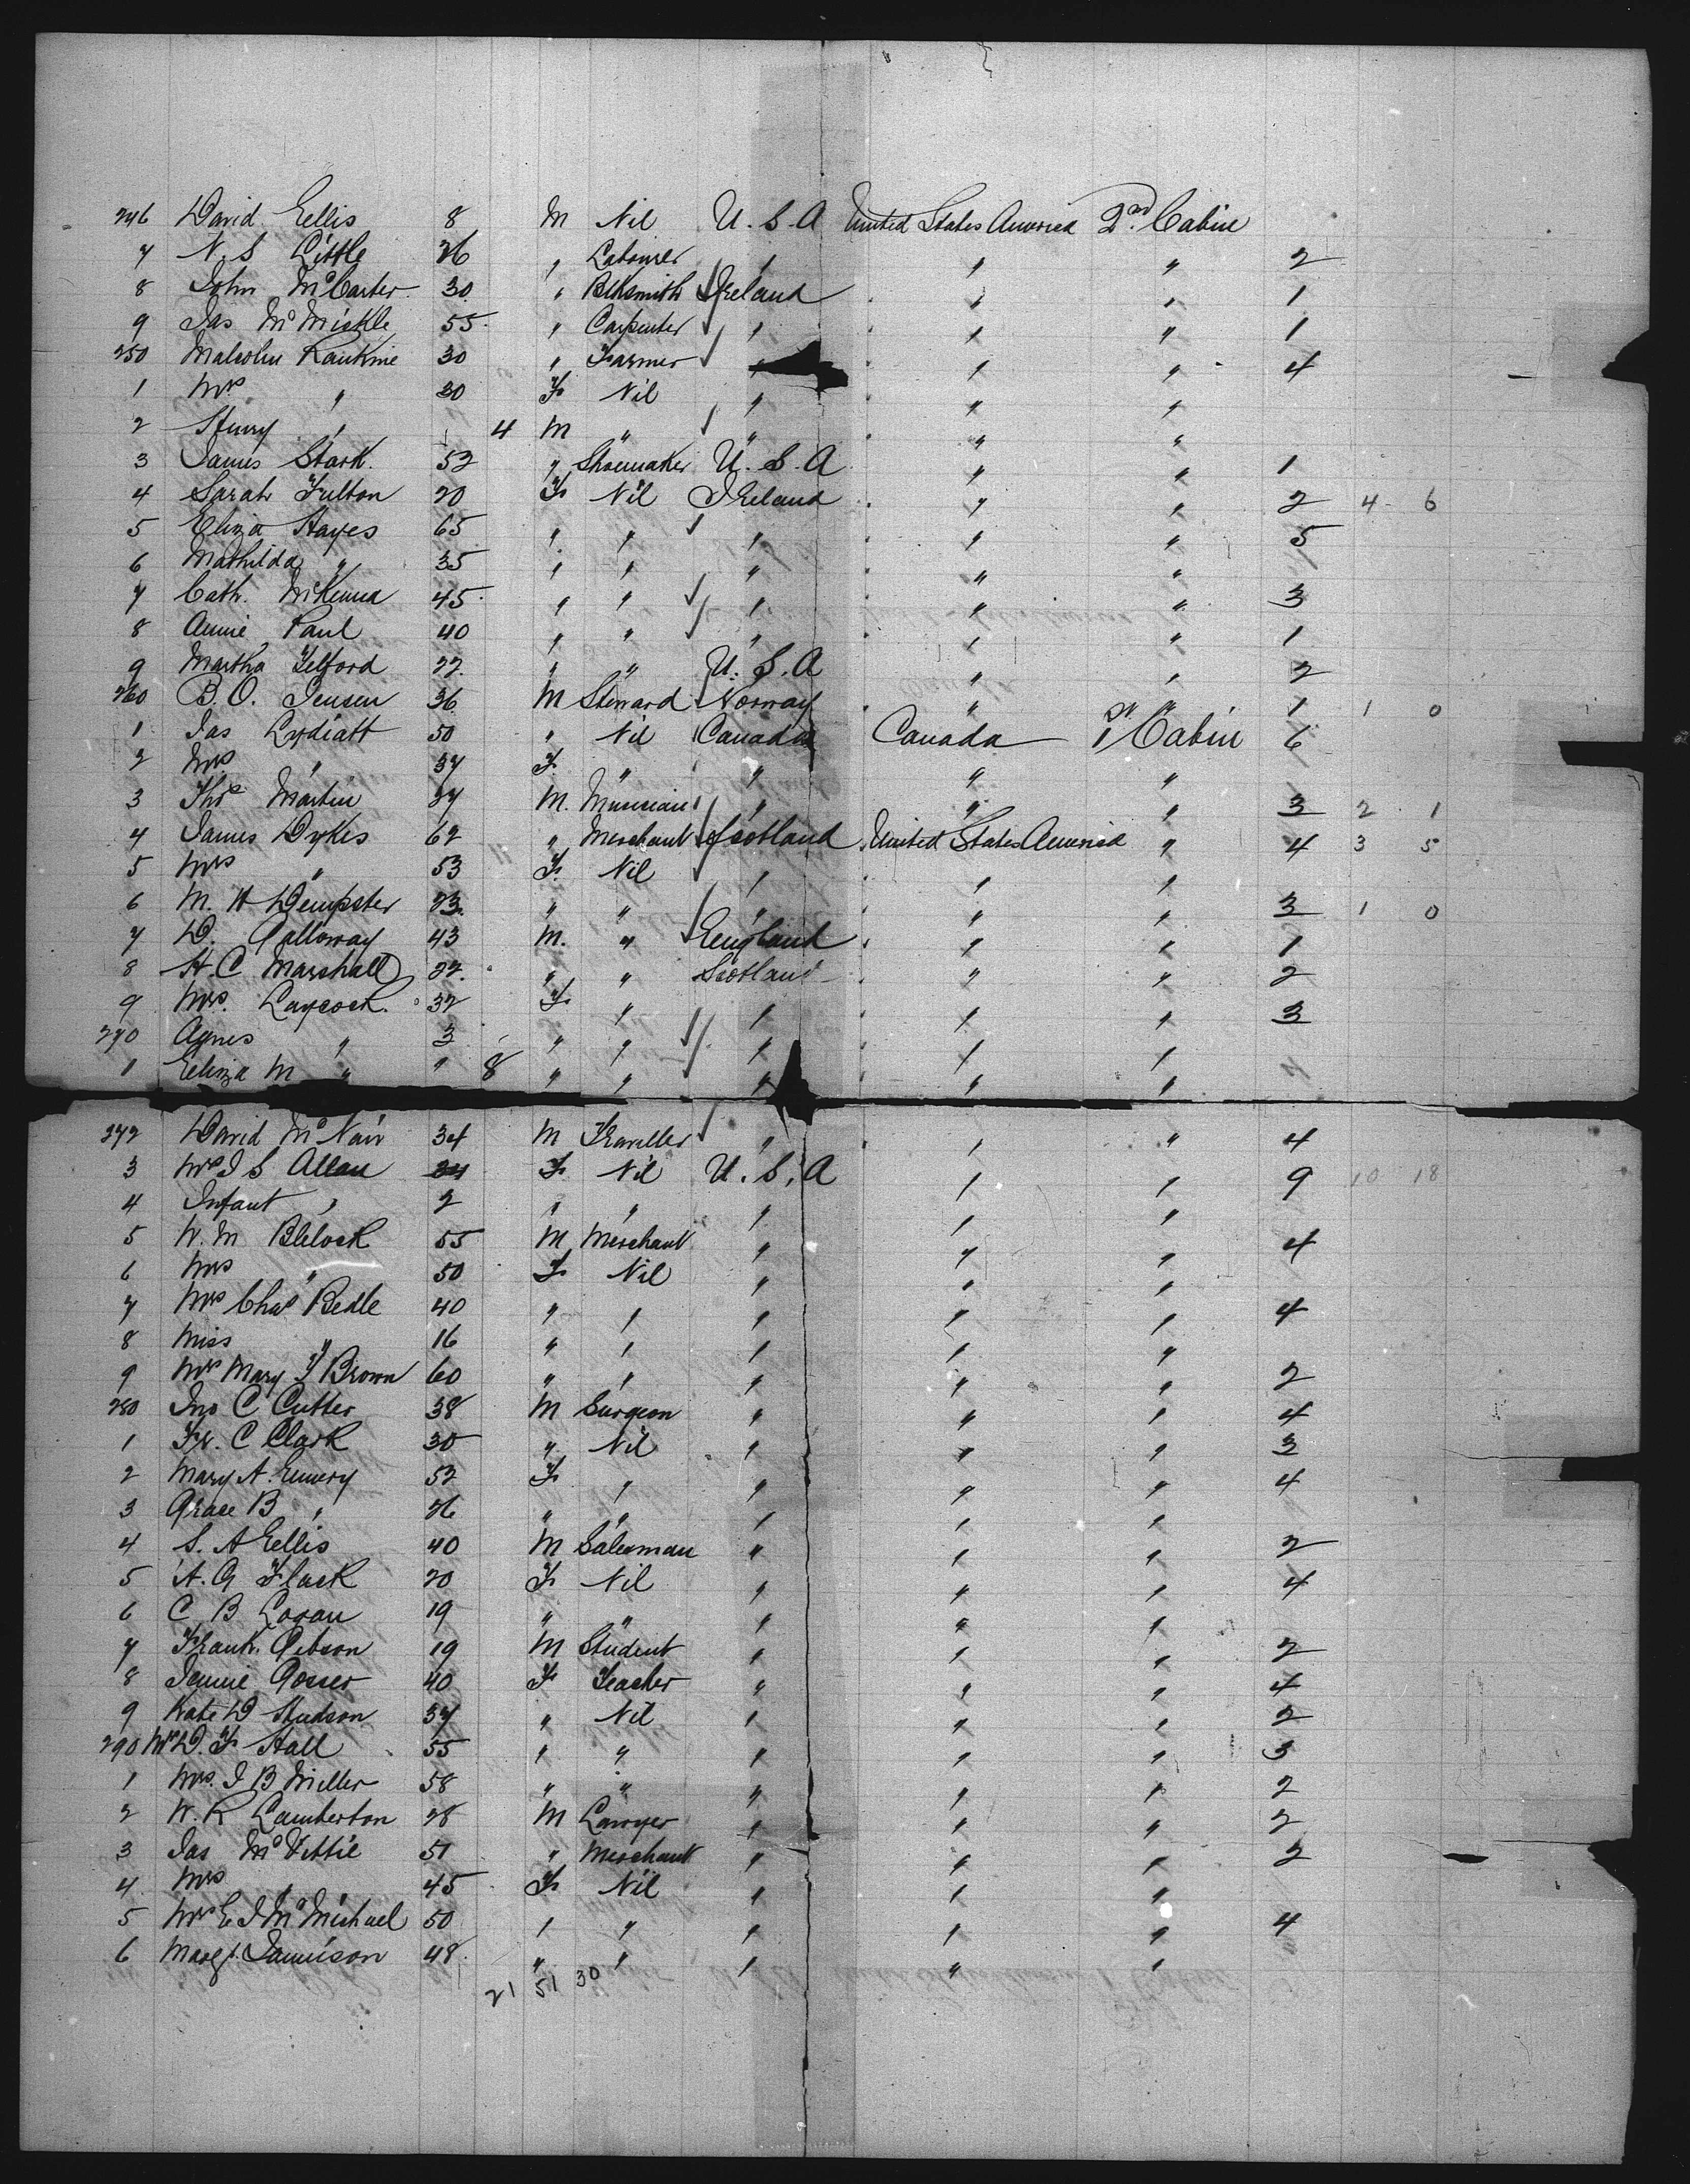 246 David Ellis 8 M Nil U. S. A United States America 2nd Cabin
7 N. S Little 26 " Labourer " " " 2
8 John McCarter 30 " Blksmith Ireland " " 1
9 Jas McMickle 55 " Carpenter " " " 1
250 Malcolm Rankine 30 " Farmer " " " 4
1 Mrs " 30 F Nil " " "
2 Henry " 4 M " " " "
3 James Stark 52 " Shoemaker U. S. A " " 1
4 Sarah Fulton 20 F Nil Ireland " " 2 4 - 6
5 Eliza Hayes 65 " " " " " 5
6 Mathilda " 35 " " " " "
7 Cath. McKenna 45 " " " " " 3
8 Annie Paul 40 " " " " " 1
9 Martha Telford 22 " " U. S. A " " 2
260 B. O. Jensen 36 M Steward Norway " " 1 1 0
1 Jas Lydiatt 50 " Nil Canada Canada 1st Cabin 6
2 Mrs " 37 F " " " "
3 Thos Martin 27 M. Musician " " " 3 2 1
4 James Dykes 62 " Merchant Scotland United States America " 4 3 5
5 Mrs " 53 F. Nil " " "
6 M. H Dempster 23 " " " " " 3 1 0
7 D. Galloway 43 M. " England " " 1
8 H. C Marshall 22 " " Scotland " " 2
9 Mrs. Laycock 32 F " " " " 3
270 Agnes " 3 " " " " "
1 Eliza M " " 8 " " " " "
272 David McNair 34 M Traveller " " " 4
3 Mrs J S Allan 34 F Nil U. S. A " " 9 10 18
4 Infant " 2 " " " " "
5 W. M Blelock 55 M Merchant " " " 4
6 Mrs " 50 F Nil " " "
7 Mrs Chas Bedle 40 " " " " " 4
8 Miss " 16 " " " " "
9 Mrs Mary F Brown 60 " " " " " 2
280 Jno C Cutter 38 M Surgeon " " " 4
1 Fr. C Clark 30 " Nil " " " 3
2 Mary A. Emery 52 F " " " " 4
3 Grace B " 26 " " " " "
4 S. A Ellis 40 M Salesman " " " 2
5 A. G Flack 20 F Nil " " " 4
6 C B Logan 19 " " " " "
7 Frank Gibson 19 M Student " " " 2
8 Jennie Gosser 40 F Teacher " " " 4
9 Kate D Hudson 37 " Nil " " " 2
290 Mrs D. F Hall 55 " " " " " 3
1 Mrs. J B Miller 58 " " " " " 2
2 W. R Lamberton 28 M Lawyer " " " 2
3 Jas McVittie 51 " Merchant " " " 2
4 Mrs " 45 F Nil " " "
5 Mrs E J McMichael 50 " " " " " 4
6 Margt. Jamieson 48 " " " " "
21 51 30